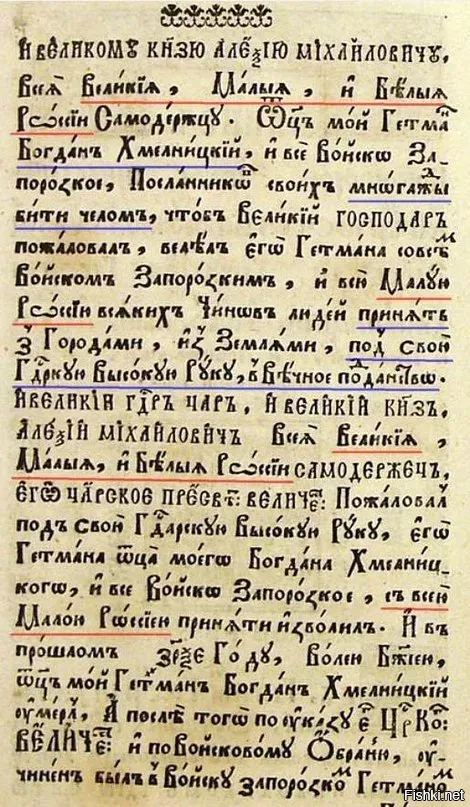 И҆ великомꙋ кн҃зю Алеѯїю Мїхайловичꙋ,
всеѧ̀ Великїѧ, Малыѧ, и҆ Бѣлыѧ
Рѡссїи Самоде́ржцꙋ. Ѿц҃ъ мо́й Гетма́нъ
Богда́нъ Хмелни́цкїй, и҆ все Во́йскѡ За-
поро́зкое, Посла́нникѡⷡ҇ свои́хъ мнѡгаⷤды
би́ти чело́мъ, что́бъ вели́кїй господаръ
пожа́ловалъ, велѣлъ є҆гѡ̀ Гетма́на совсѣⷨ
Во́йскомъ Запоро́зкимъ, и҆ всю̀ Ма́лꙋю
Рѡссїю всѧкихъ Чи́нѡвъ люде́й приня́ть
з̾ Города́ми, и҆з̾ Земля́ми, поⷣ свою̀
Гдⷭ҇рскꙋю Высо́кꙋю Рꙋ́кꙋ, в̾ Вѣ́чное поⷣда́нⷭ҇твѡ.
И҆великїй гдⷭ҇рь ца́рь, и҆ вели́кїй кн҃зь,
Алеѯїй Мїха́йловичъ всеѧ̀ Вели́кїѧ,
Ма́лыѧ, и҆ Бѣ́лыѧ Рѡссїи самоде́ржецъ,
є҆гѡ̀ ца́рское пресвⷮ: вели́чеⷭ҇: Пожа́ловалъ
подъ свою̀ Гдⷭ҇рскꙋю Высо́кꙋю Рꙋ́кꙋ, є҆гѡ̀
Гетма́на ѿц҃а моегѡ̀ Богда́на Хмелни́ц-
когѡ, и҆ все Во́йскѡ Запоро́зкое, съ все́ю
Ма́лою Рѡссїею приня́ти и҆зво́лилъ. И҆ въ
про́шломъ ҂зрѯе Го́дꙋ, во́лею Бж҃їею,
ѿц҃ъ мо́й Ге́тманъ Богда́нъ Хмелни́цкїй
ᲂу҆́мерлъ, А҆ послѣ тогѡ̀ по ᲂу҆ка́зꙋ є҆ Цр҃Кѡ:
Вели́чеⷭ҇: и҆ по Войско́вомꙋ Ѡ҆бра́нїю, ᲂу҆-
чине́нъ бы́лъ в̾ Во́йскꙋ запоро́зкоⷨ Ге́тманоⷨ
Fishki.net